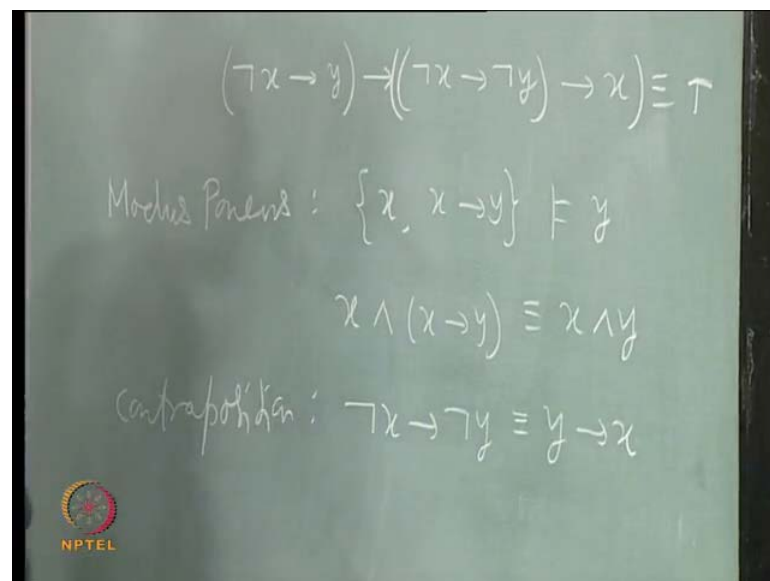 (¬x → y) → ((¬x → ¬y) → x) ≡ ⊤
Modus Ponens : {x, x → y} ⊨ y
x ∧ (x → y) ≡ x ∧ y
Contraposition : ¬x → ¬y ≡ y → x
NPTEL